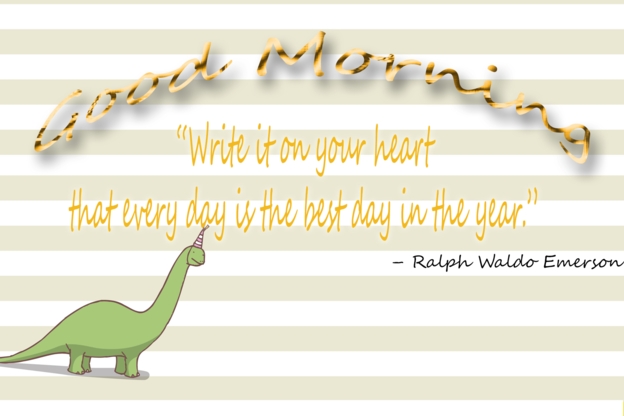 Good Morning
“Write it on your heart
that every day is the best day in the year.”
– Ralph Waldo Emerson